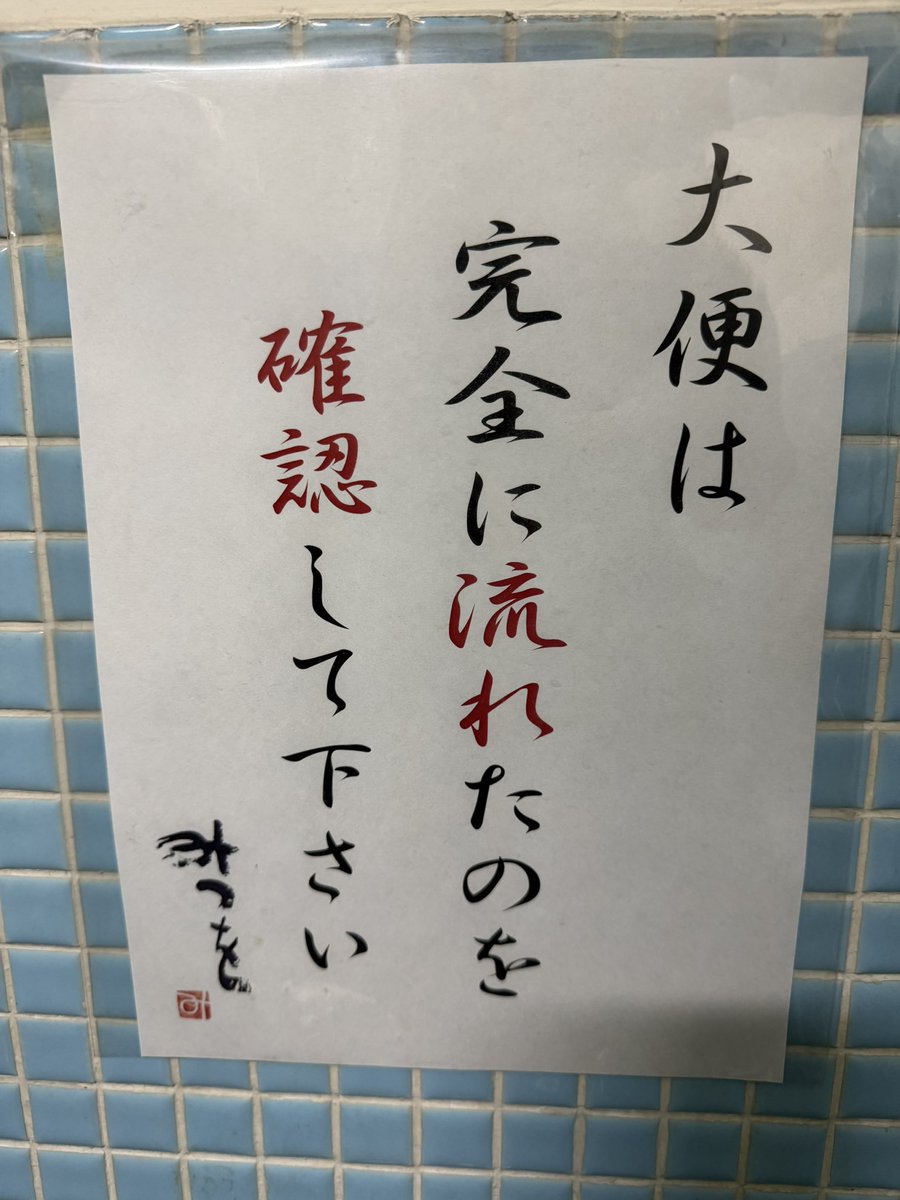 大便は
完全に流れたのを
確認して下さい
みつを
み